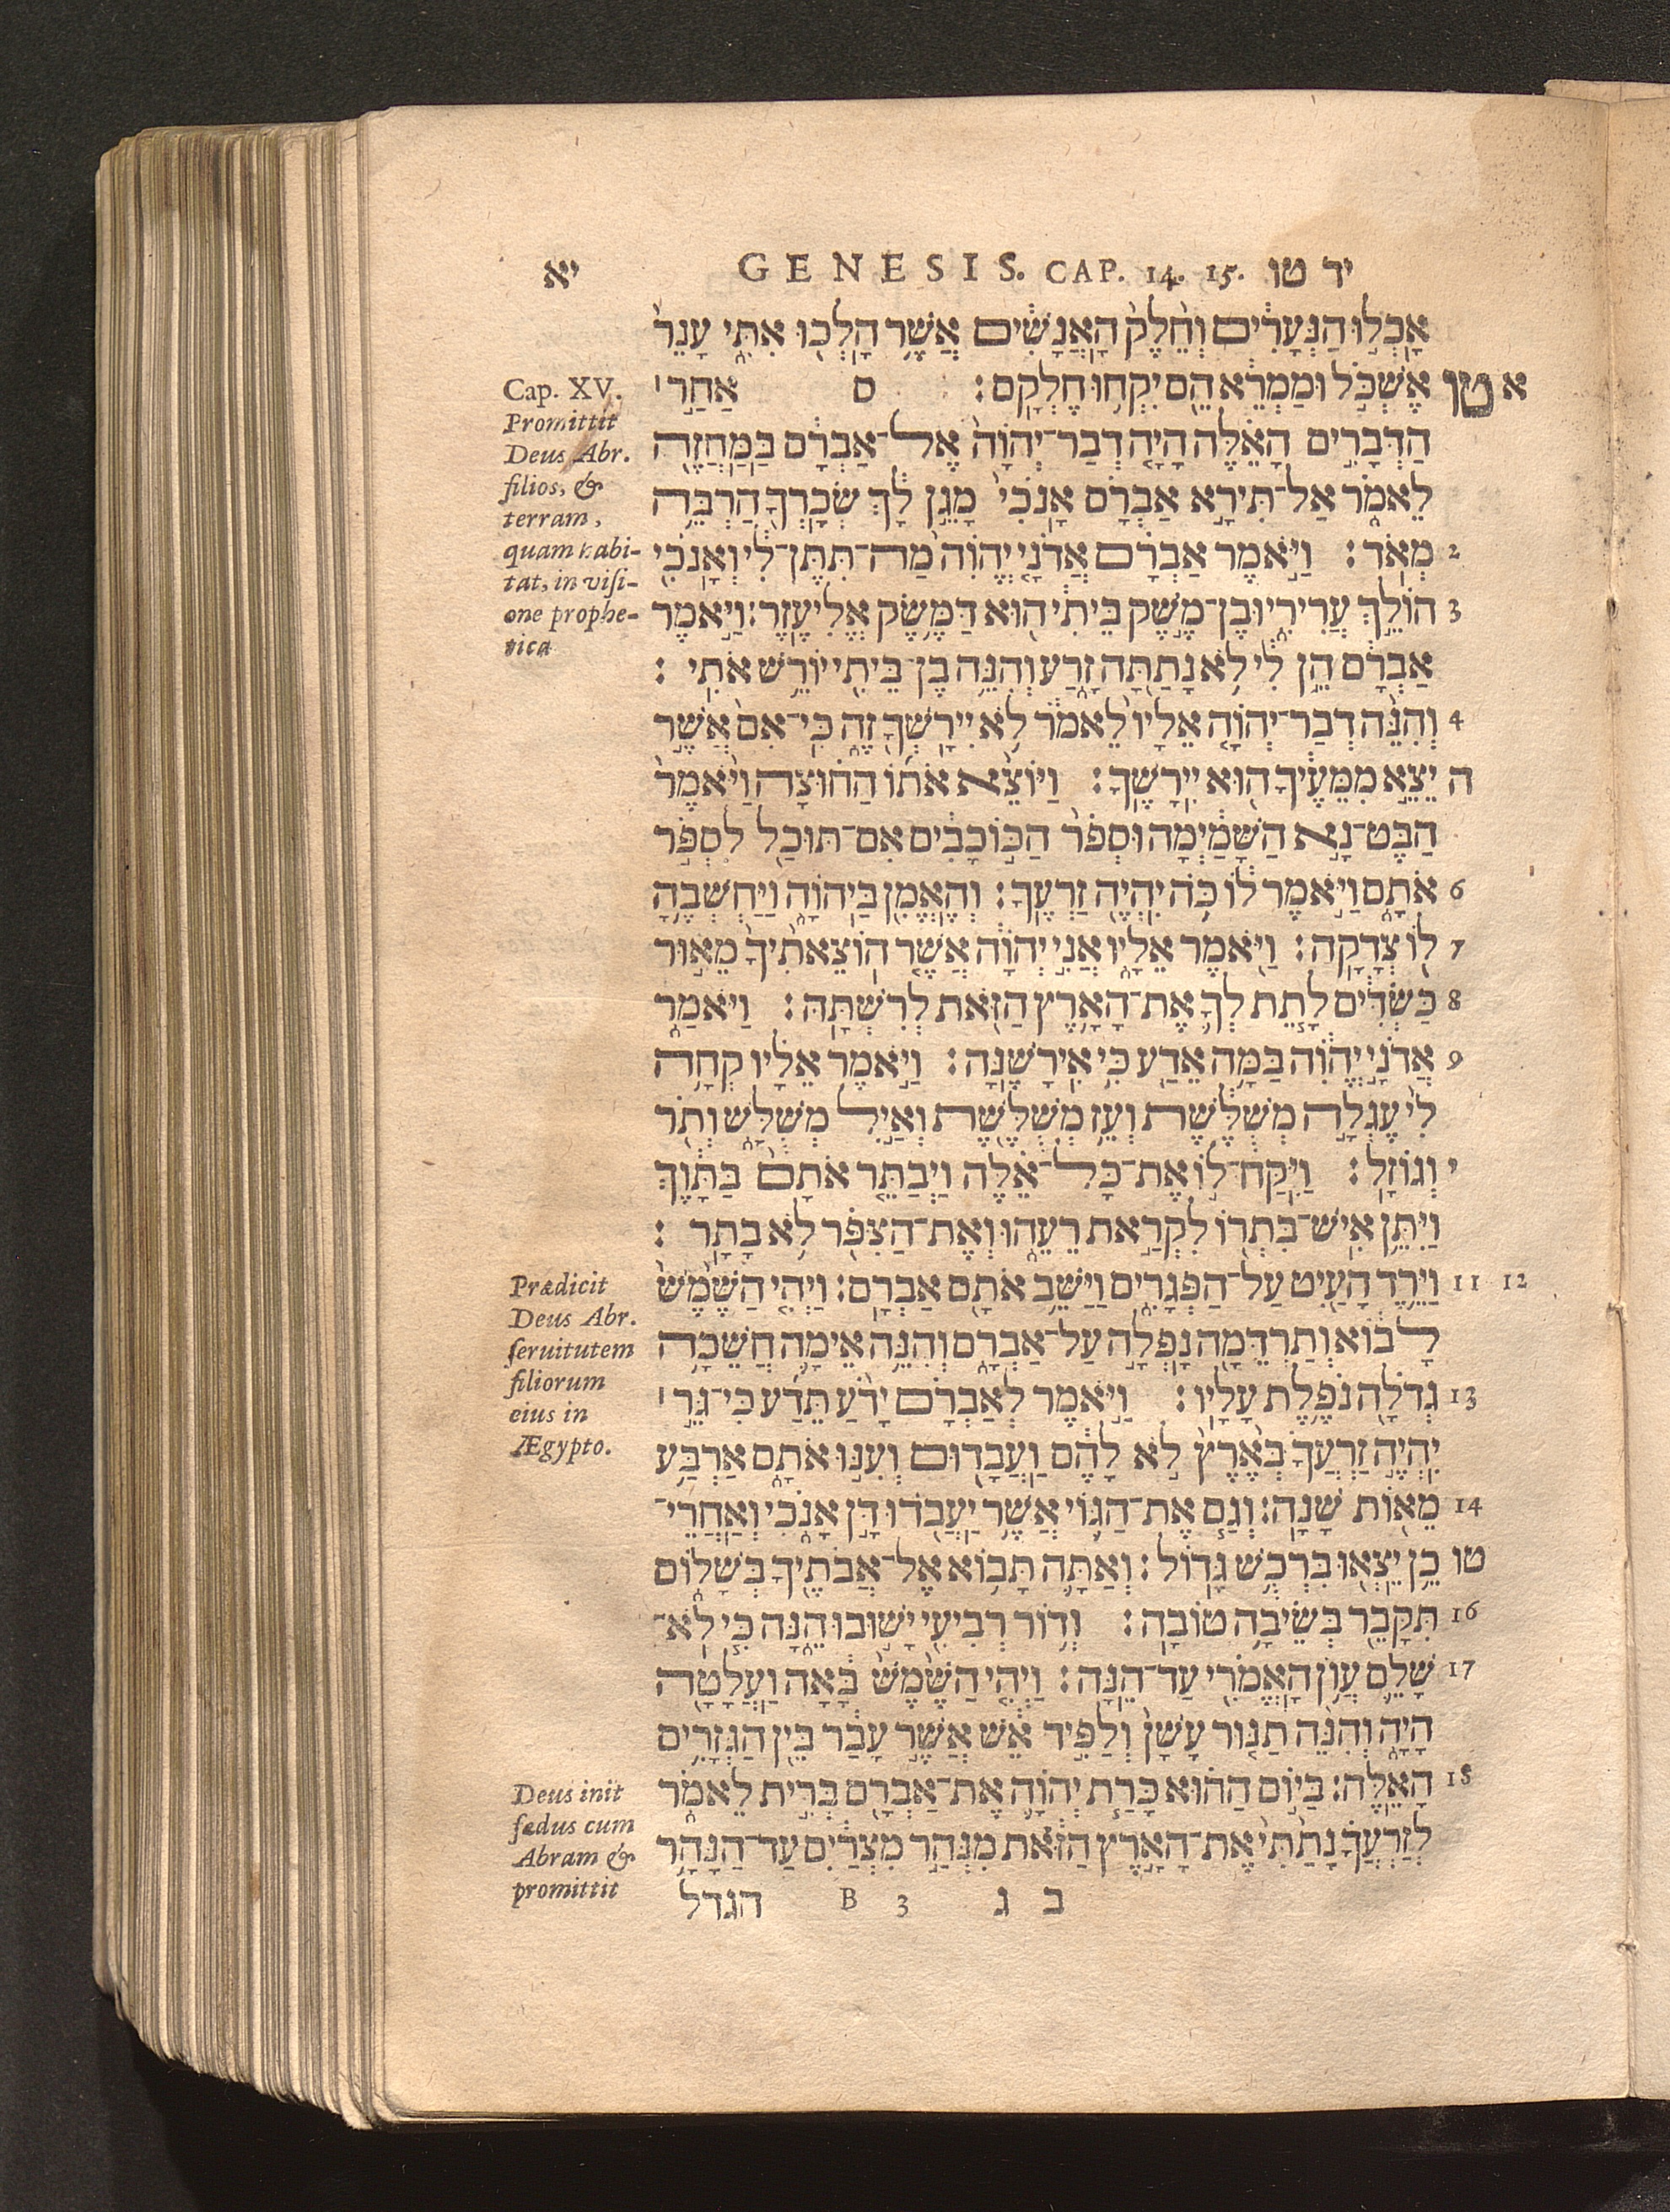 יא GENESIS. CAP. 14. 15. יד טו
אָכְל֣וּ הַנְּעָרִ֔ים וְחֵ֙לֶק֙ הָֽאֲנָשִׁ֔ים אֲשֶׁ֥ר הָלְכ֖וּ אִתִּ֑י עָנֵר֙
א טו אֶשְׁכֹּ֣ל וּמַמְרֵ֔א הֵ֖ם יִקְח֥וּ חֶלְקָֽם׃ ס אַחַ֣ר ׀
הַדְּבָרִ֣ים הָאֵ֗לֶּה הָיָ֤ה דְבַר־יְהוָֹה֙ אֶל־אַבְרָ֔ם בַּֽמַּחֲזֶ֖ה
לֵאמֹ֑ר אַל־תִּירָ֣א אַבְרָ֗ם אָנֹכִי֙ מָגֵ֣ן לָ֔ךְ שְׂכָרְךָ֖ הַרְבֵּ֥ה
2 מְאֹֽד׃ וַיֹּ֣אמֶר אַבְרָ֗ם אֲדֹנָ֤י יֱהֹוִה֙ מַה־תִּתֶּן־לִ֔י וְאָנֹכִ֖י
3 הוֹלֵ֣ךְ עֲרִירִ֑י וּבֶן־מֶ֣שֶׁק בֵּיתִ֔י ה֖וּא דַּמֶּ֥שֶׂק אֱלִיעֶֽזֶר׃ וַיֹּ֣אמֶר
אַבְרָ֔ם הֵ֣ן לִ֔י לֹ֥א נָתַ֖תָּה זָ֑רַע וְהִנֵּ֥ה בֶן־בֵּיתִ֖י יוֹרֵ֥שׁ אֹתִֽי׃
4 וְהִנֵּ֨ה דְבַר־יְהוָֹ֤ה אֵלָיו֙ לֵאמֹ֔ר לֹ֥א יִֽירָשְׁךָ֖ זֶ֑ה כִּי־אִם֙ אֲשֶׁ֣ר
ה יֵצֵ֣א מִמֵּעֶ֔יךָ ה֖וּא יִֽירָשֶֽׁךָ׃ וַיּוֹצֵ֨א אֹת֜וֹ הַח֗וּצָה וַיֹּ֙אמֶר֙
הַבֶּט־נָ֣א הַשָּׁמַ֗יְמָה וּסְפֹר֙ הַכּ֣וֹכָבִ֔ים אִם־תּוּכַ֖ל לִסְפֹּ֣ר
6 אֹתָ֑ם וַיֹּ֣אמֶר ל֔וֹ כֹּ֥ה יִהְיֶ֖ה זַרְעֶֽךָ׃ וְהֶֽאֱמִ֖ן בַּֽיהוָֹ֑ה וַיַּחְשְׁבֶ֥הָ
7 לּ֖וֹ צְדָקָֽה׃ וַיֹּ֖אמֶר אֵלָ֑יו אֲנִ֣י יְהוָֹ֗ה אֲשֶׁ֤ר הוֹצֵאתִ֙יךָ֙ מֵא֣וּר
8 כַּשְׂדִּ֔ים לָ֧תֶת לְךָ֛ אֶת־הָאָ֥רֶץ הַזֹּ֖את לְרִשְׁתָּֽהּ׃ וַיֹּאמַ֑ר
9 אֲדֹנָ֣י יֱהֹוִ֔ה בַּמָּ֥ה אֵדַ֖ע כִּ֥י אִֽירָשֶֽׁנָּה׃ וַיֹּ֣אמֶר אֵלָ֗יו קְחָ֥ה
לִי֙ עֶגְלָ֣ה מְשֻׁלֶּ֔שֶׁת וְעֵ֥ז מְשֻׁלֶּ֖שֶׁת וְאַ֣יִל מְשֻׁלָּ֑שׁ וְתֹ֖ר
י וְגוֹזָֽל׃ וַיִּֽקַּֽח־ל֣וֹ אֶת־כָּל־אֵ֗לֶּה וַיְבַתֵּ֤ר אֹתָם֙ בַּתָּ֔וֶךְ
וַיִּתֵּ֥ן אִישׁ־בִּתְר֖וֹ לִקְרַ֣את רֵעֵ֑הוּ וְאֶת־הַצִּפֹּ֖ר לֹ֥א בָתָֽר׃
11 12 וַיֵּ֥רֶד הָעַ֖יִט עַל־הַפְּגָרִ֑ים וַיַּשֵּׁ֥ב אֹתָ֖ם אַבְרָֽם׃ וַיְהִ֤י הַשֶּׁ֙מֶשׁ֙
לָב֔וֹא וְתַרְדֵּמָ֖ה נָפְלָ֣ה עַל־אַבְרָ֑ם וְהִנֵּ֥ה אֵימָ֛ה חֲשֵׁכָ֥ה
13 גְדֹלָ֖ה נֹפֶ֥לֶת עָלָֽיו׃ וַיֹּ֣אמֶר לְאַבְרָ֗ם יָדֹ֨עַ תֵּדַ֜ע כִּי־גֵ֣ר ׀
יִהְיֶ֣ה זַרְעֲךָ֗ בְּאֶ֙רֶץ֙ לֹ֣א לָהֶ֔ם וַעֲבָד֖וּם וְעִנּ֣וּ אֹתָ֑ם אַרְבַּ֥ע
14 מֵא֖וֹת שָׁנָֽה׃ וְגַ֧ם אֶת־הַגּ֛וֹי אֲשֶׁ֥ר יַעֲבֹ֖דוּ דָּ֣ן אָנֹ֑כִי וְאַחֲרֵי־
טו כֵ֥ן יֵצְא֖וּ בִּרְכֻ֥שׁ גָּדֽוֹל׃ וְאַתָּ֛ה תָּב֥וֹא אֶל־אֲבֹתֶ֖יךָ בְּשָׁל֑וֹם
16 תִּקָּבֵ֖ר בְּשֵׂיבָ֥ה טוֹבָֽה׃ וְד֥וֹר רְבִיעִ֖י יָשׁ֣וּבוּ הֵ֑נָּה כִּ֧י לֹא־
17 שָׁלֵ֛ם עֲוֺ֥ן הָאֱמֹרִ֖י עַד־הֵֽנָּה׃ וַיְהִ֤י הַשֶּׁ֙מֶשׁ֙ בָּ֔אָה וַעֲלָטָ֖ה
הָיָ֑ה וְהִנֵּ֨ה תַנּ֤וּר עָשָׁן֙ וְלַפִּ֣יד אֵ֔שׁ אֲשֶׁ֣ר עָבַ֔ר בֵּ֖ין הַגְּזָרִ֥ים
18 הָאֵֽלֶּה׃ בַּיּ֣וֹם הַה֗וּא כָּרַ֧ת יְהוָֹ֛ה אֶת־אַבְרָ֖ם בְּרִ֣ית לֵאמֹ֑ר
לְזַרְעֲךָ֗ נָתַ֙תִּי֙ אֶת־הָאָ֣רֶץ הַזֹּ֔את מִנְּהַ֣ר מִצְרַ֔יִם עַד־הַנָּהָ֥ר
ב ג B 3 הגדל
Cap. XV.
Promittit
Deus Abr.
filios, &
terram,
quam habi-
tat, in visi-
one prophe-
tica
Prædicit
Deus Abr.
seruitutem
filiorum
eius in
Ægypto.
Deus init
fœdus cum
Abram &
promittit